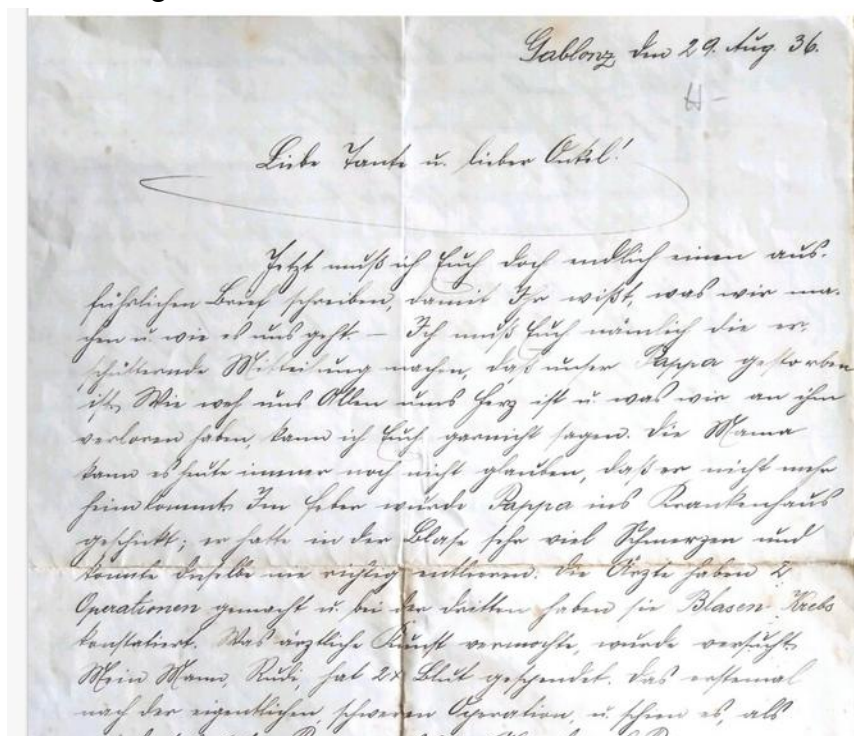 Gablonz, den 29. Aug. 36.
H-
Liebe Tante u. lieber Onkel!
Jetzt muß ich Euch doch endlich einen aus-
führlichen Brief schreiben, damit Ihr wißt, was wir ma-
chen u. wie es uns geht. – Ich muß Euch nämlich die er-
schütternde Mitteilung machen, daß unser Pappa gestorben
ist. Wie weh uns Allen ums Herz ist u. was wir an ihm
verloren haben, kann ich Euch garnicht sagen. Die Mama
kann es heute immer noch nicht glauben, daß er nicht mehr
heimkommt. Im Feber wurde Pappa ins Krankenhaus
geschickt; er hatte in der Blase sehr viel Schmerzen und
konnte dieselbe nie richtig entleeren. Die Ärzte haben 2
Operationen gemacht u. bei der dritten haben sie Blasen-Krebs
konstatiert. Was ärztliche Kunst vermochte, wurde versucht.
Mein Mann, Rudi, hat 2x Blut gespendet. Das erstemal
nach der eigentlichen, schweren Operation, u. schien es, als